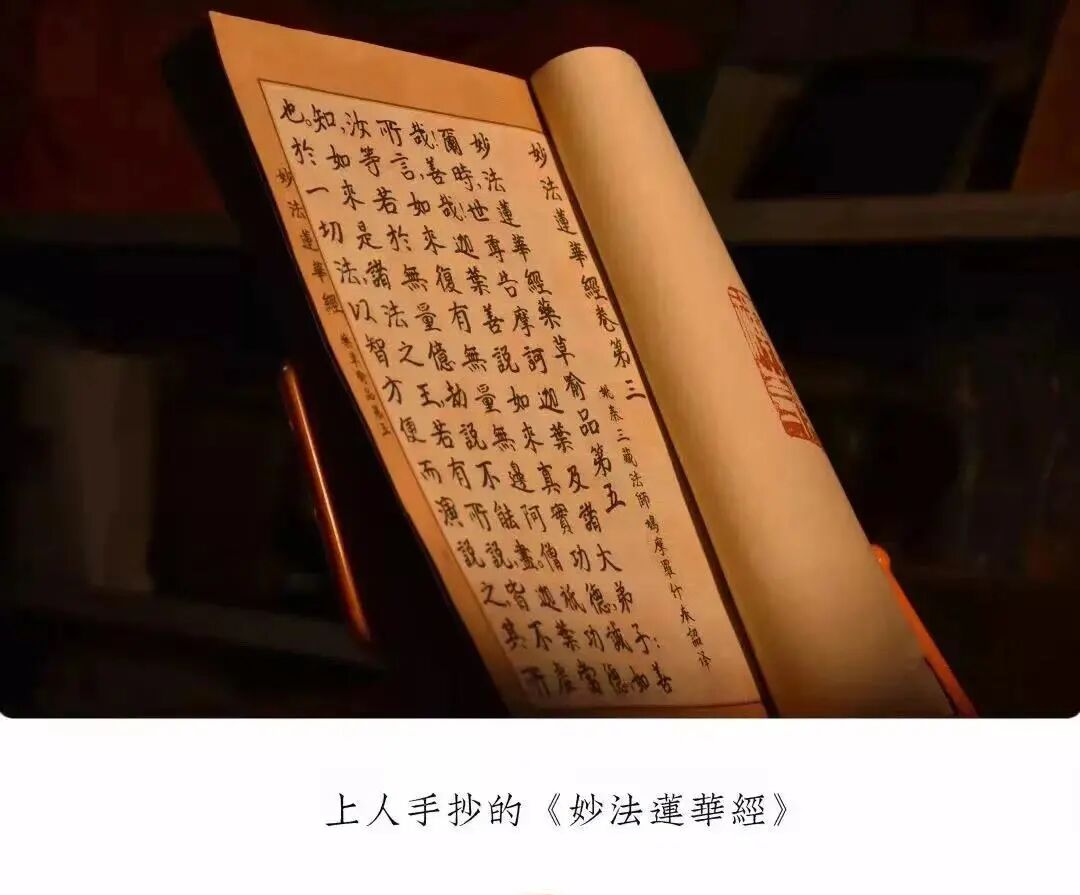 妙法蓮華經卷第三
姚秦三藏法師鳩摩羅什奉詔译
妙法蓮華經藥草喻品第五
爾時,世尊告摩訶迦葉及諸大弟子:善
哉!善哉!迦葉善說如來真實功德,誠如
所言,如來復有無量無邊阿僧祇功德
汝等若於無量億劫說不能盡。迦葉當
知,如來是諸法之王,若有所說,皆不虛
也。於一切法,以智方便而演說之,其所
妙法蓮華經 藥草喻品第五
上人手抄的《妙法蓮華經》